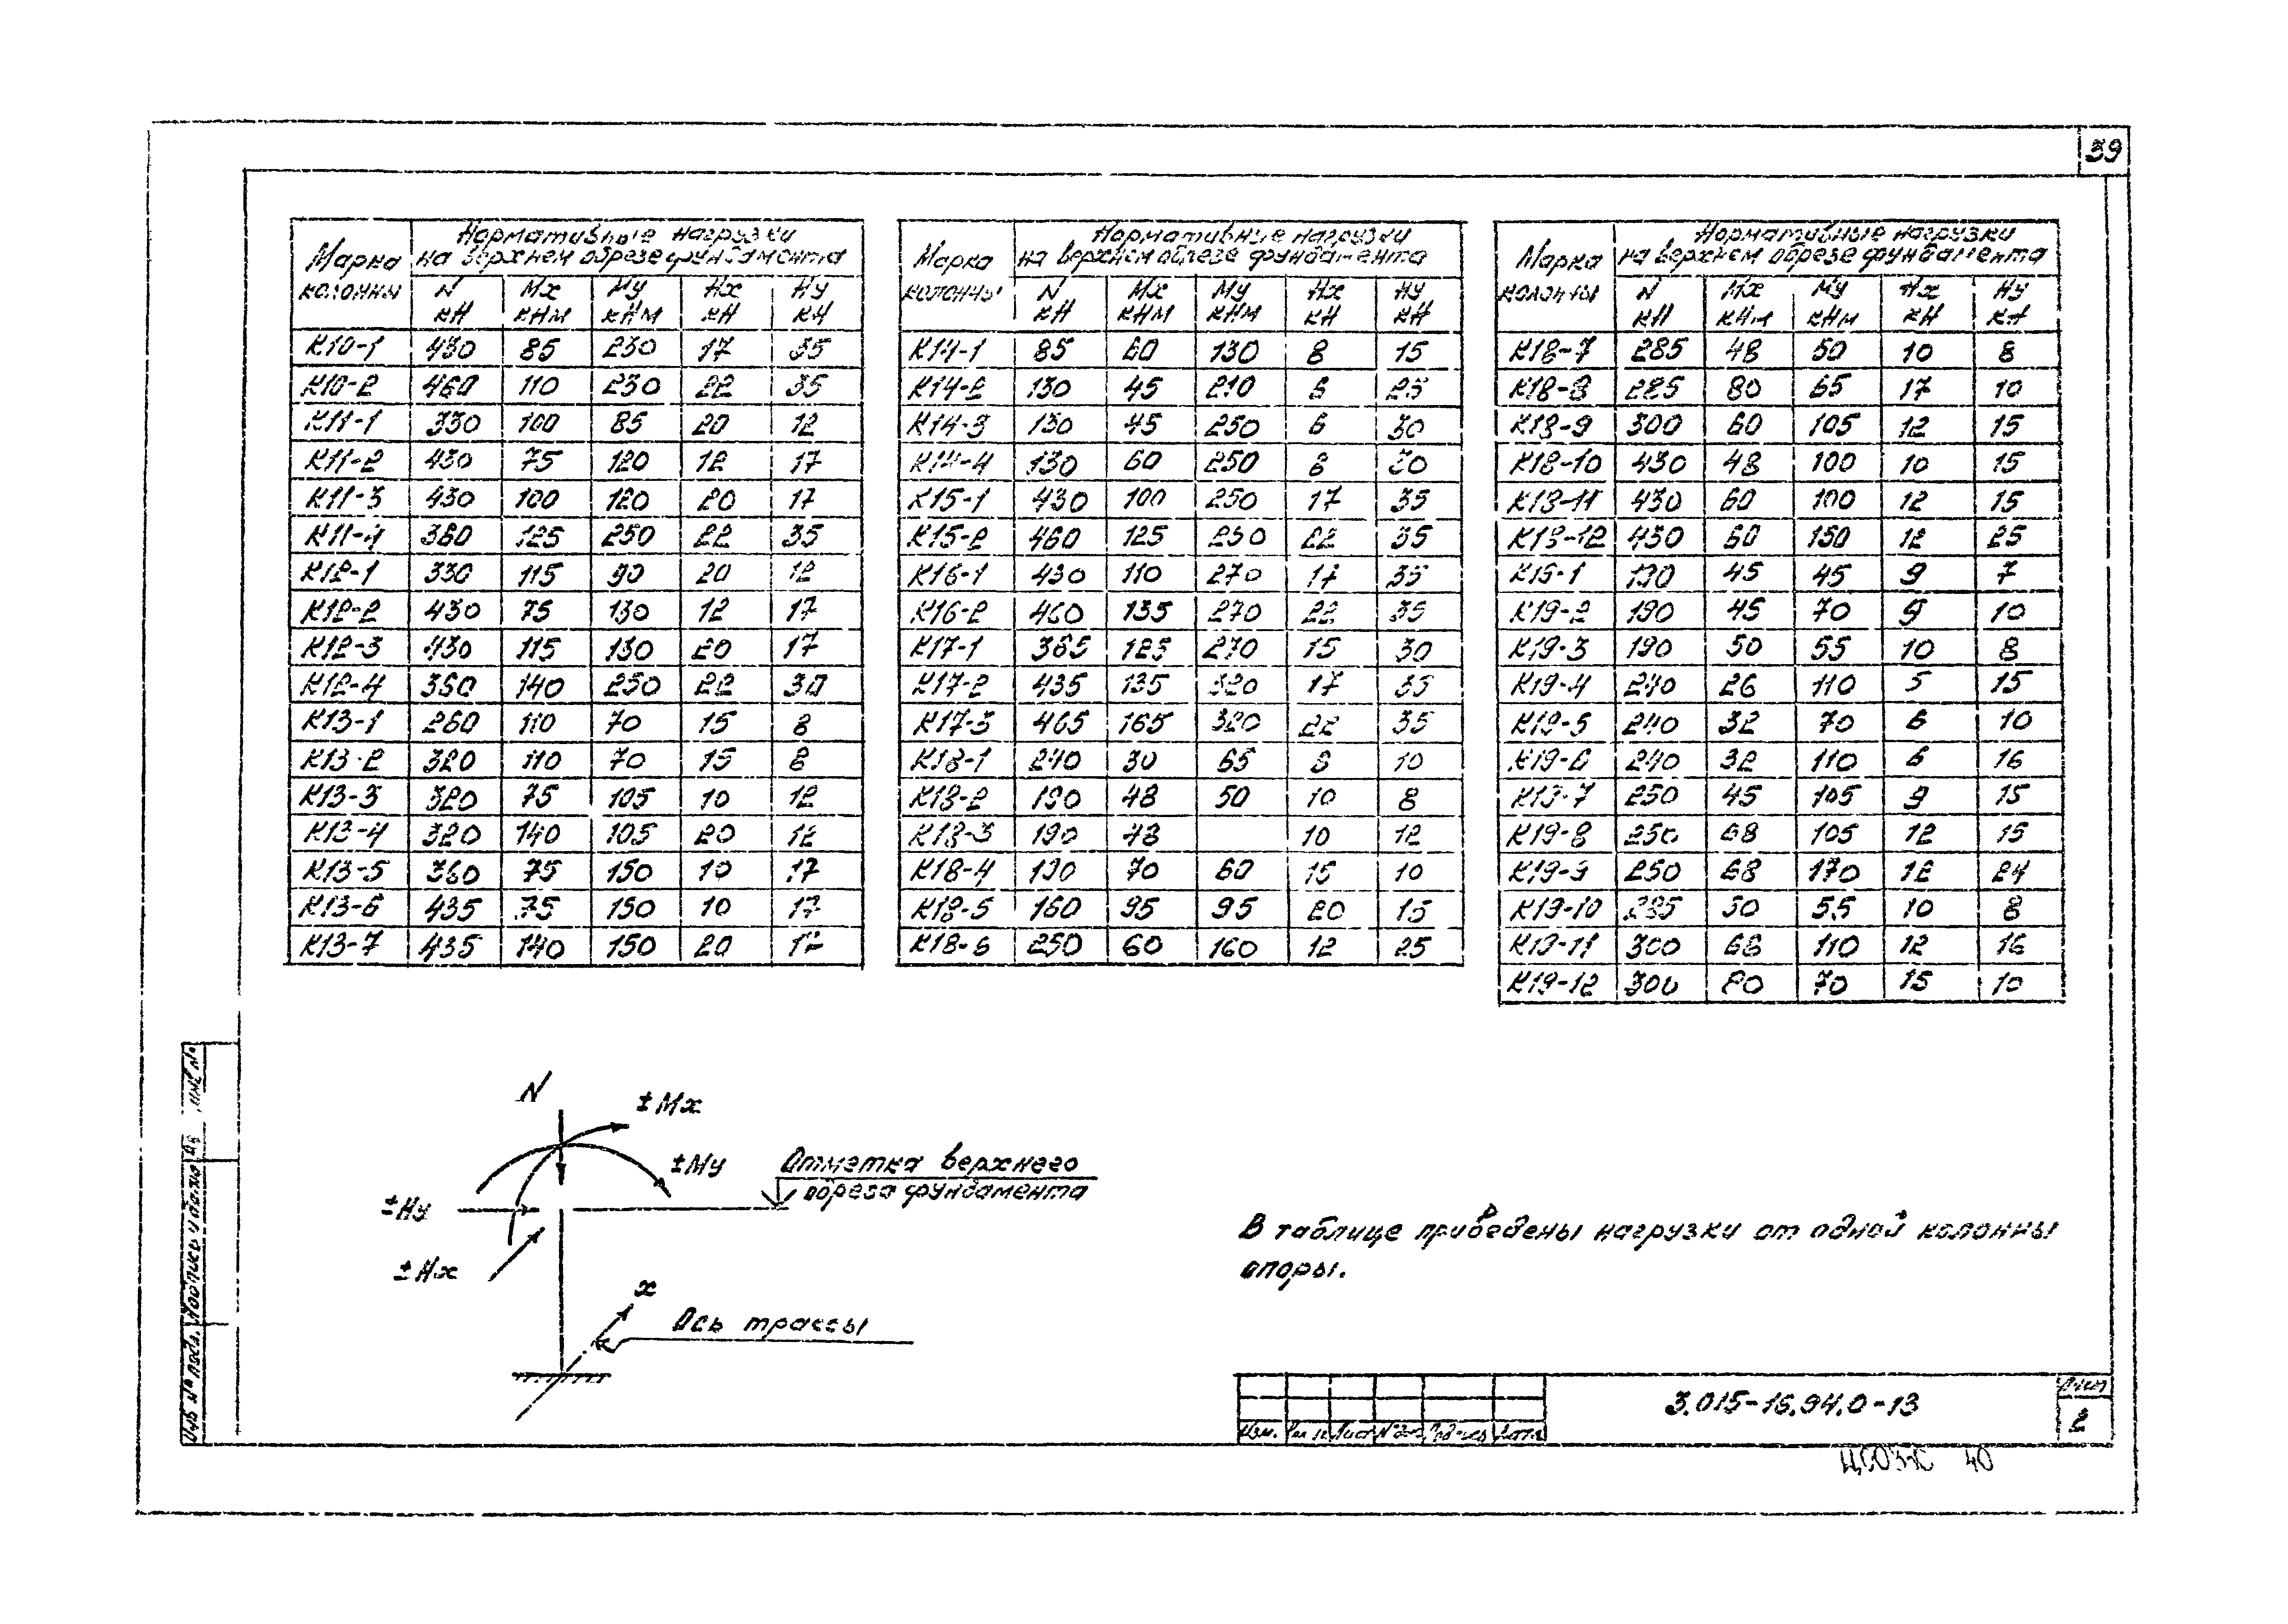 39
Марка колонны
Нормативные нагрузки
на верхнем обрезе фундамента
N кН Mx кНм My кНм Hx кН Hy кН
К10-1 430 85 230 17 35
К10-2 460 110 230 22 35
К11-1 330 100 85 20 12
К11-2 430 75 120 12 17
К11-3 430 100 120 20 17
К11-4 360 125 250 22 35
К12-1 330 115 90 20 12
К12-2 430 75 130 12 17
К12-3 430 115 130 20 17
К12-4 350 140 250 22 30
К13-1 260 110 70 15 8
К13-2 320 110 70 15 8
К13-3 320 75 105 10 12
К13-4 320 140 105 20 12
К13-5 360 75 150 10 17
К13-6 435 75 150 10 17
К13-7 435 140 150 20 17
Марка колонны
Нормативные нагрузки
на верхнем обрезе фундамента
N кН Mx кНм My кНм Hx кН Hy кН
К14-1 85 60 130 8 15
К14-2 130 45 210 6 25
К14-3 130 45 250 6 30
К14-4 130 60 250 8 30
К15-1 430 100 250 17 35
К15-2 460 125 250 22 35
К16-1 430 110 270 17 35
К16-2 460 135 270 22 35
К17-1 365 125 270 15 30
К17-2 435 135 320 17 35
К17-3 465 165 320 22 35
К18-1 240 30 65 8 10
К18-2 190 48 50 10 8
К18-3 190 48 10 12
К18-4 190 70 60 15 10
К18-5 160 95 95 20 15
К18-6 250 60 160 12 25
Марка колонны
Нормативные нагрузки
на верхнем обрезе фундамента
N кН Mx кНм My кНм Hx кН Hy кН
К18-7 285 48 50 10 8
К18-8 285 80 65 17 10
К18-9 300 60 105 12 15
К18-10 430 48 100 10 15
К18-11 430 60 100 12 15
К18-12 430 60 150 12 25
К19-1 190 45 45 9 7
К19-2 190 45 70 9 10
К19-3 190 50 55 10 8
К19-4 240 26 110 5 15
К19-5 240 32 70 6 10
К19-6 240 32 110 6 16
К19-7 250 45 105 9 15
К19-8 250 68 105 12 15
К19-9 250 68 170 12 24
К19-10 285 50 55 10 8
К19-11 300 68 110 12 16
К19-12 300 80 70 15 10
N
±Mx
±My
±Hy
±Hx
Отметка верхнего
обреза фундамента
x
Ось трассы
В таблице приведены нагрузки от одной колонны
опоры.
Инв № подл. Подпись и дата инв №
Изм. Лист Дата
3.015-16.94.0-13
Лист
2
40